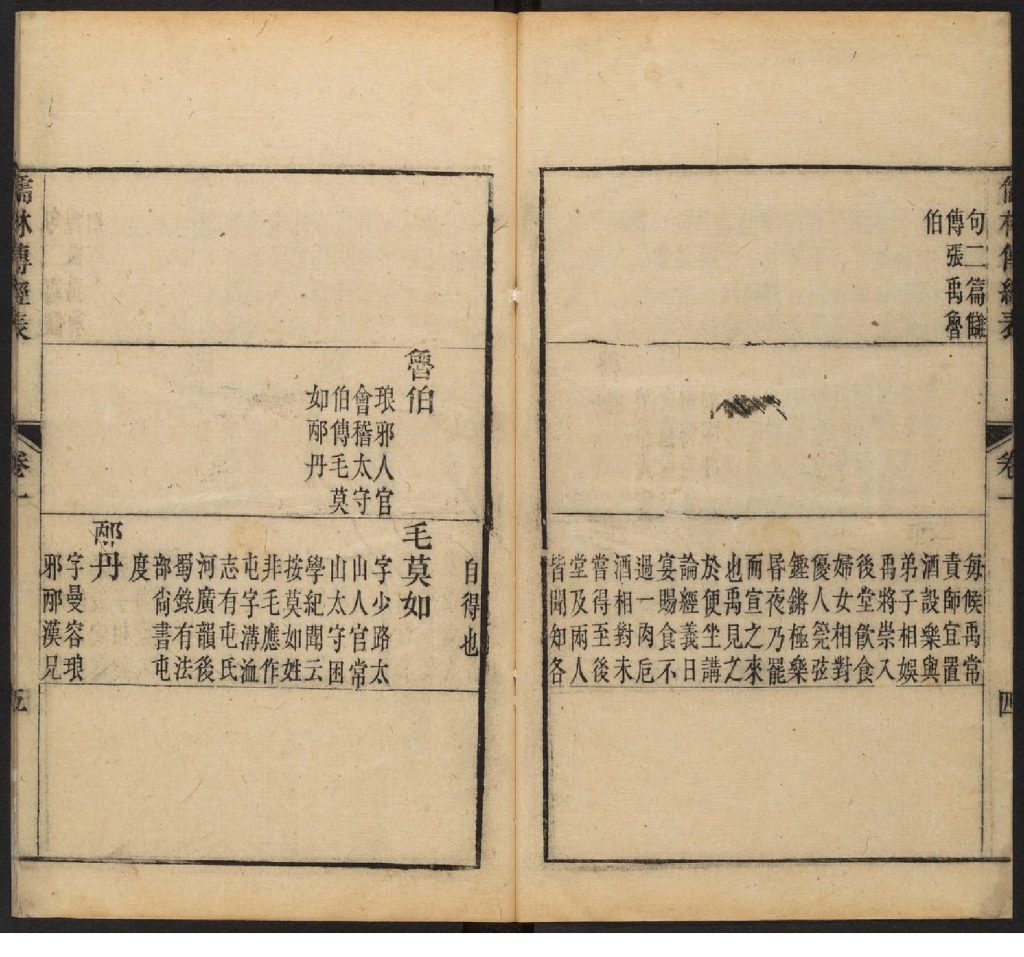 儒林傳經表
卷一
四
句二篇讎
傳張禹魯
伯
每候禹常
責師宜置
酒設樂與
弟子相娛
禹將崇入
後堂飲食
婦女相對
優人筦弦
鏗鏘極樂
昏夜乃罷
而宣之來
也禹見之
於便坐講
論經義日
宴賜食不
過一肉卮
酒相對未
嘗得至後
堂及兩人
皆聞知各
魯伯
琅邪人官
會稽太守
伯傳毛莫
如邴丹
自得也
毛莫如
字少路太
山人官常
山太守困
學紀聞云
按莫如姓
非毛應作
屯字溝洫
志有屯氏
河廣韻後
蜀錄有法
部尚書屯
度
邴丹
字曼容琅
邪邴漢兄
儒林傳經表
卷一
五